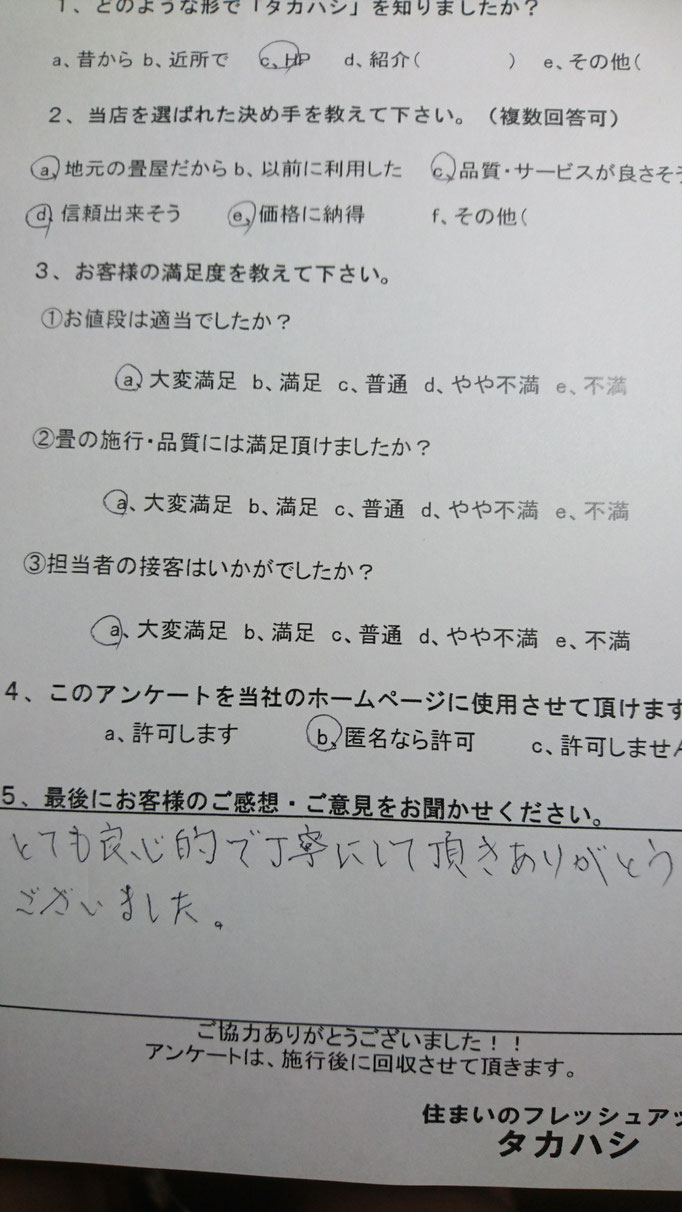 1、どのような形で「タカハシ」を知りましたか？
a、昔から b、近所で c、HP d、紹介（ ） e、その他（
2、当店を選ばれた決め手を教えて下さい。（複数回答可）
a、地元の畳屋だから b、以前に利用した c、品質・サービスが良さそう
d、信頼出来そう e、価格に納得 f、その他（
3、お客様の満足度を教えて下さい。
①お値段は適当でしたか？
a、大変満足 b、満足 c、普通 d、やや不満 e、不満
②畳の施行・品質には満足頂けましたか？
a、大変満足 b、満足 c、普通 d、やや不満 e、不満
③担当者の接客はいかがでしたか？
a、大変満足 b、満足 c、普通 d、やや不満 e、不満
4、このアンケートを当社のホームページに使用させて頂けます
a、許可します b、匿名なら許可 c、許可しません
5、最後にお客様のご感想・ご意見をお聞かせください。
とても良心的で丁寧にして頂きありがとう
ございました。
ご協力ありがとうございました！！
アンケートは、施行後に回収させて頂きます。
住まいのフレッシュアッ
タカハシ